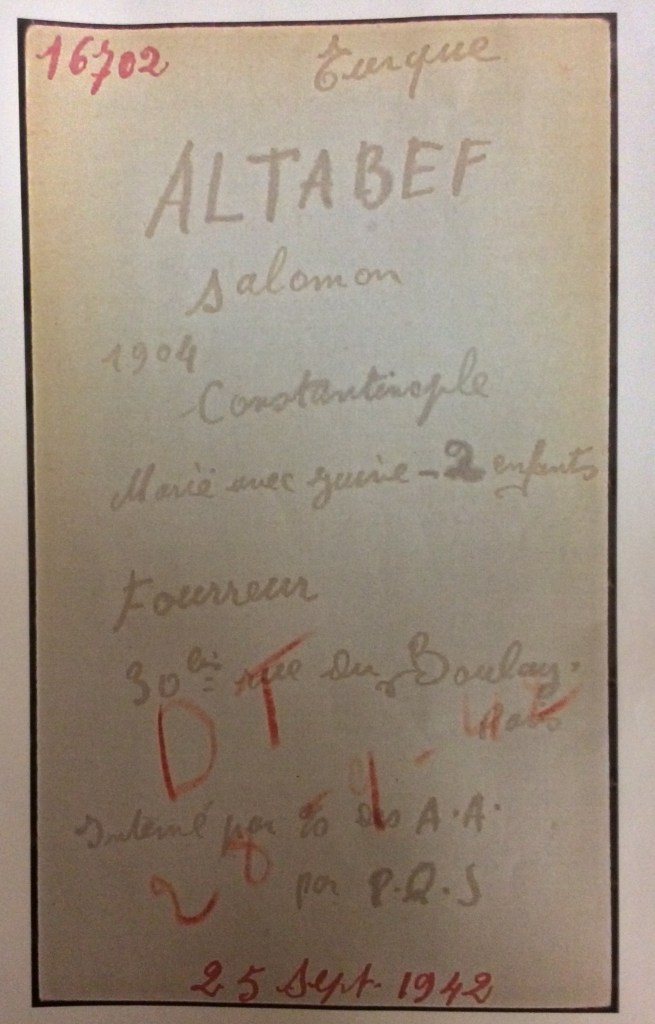 16702 Turque
ALTABEF
Salomon
1904
Constantinople
Marié avec juive - 2 enfants
Fourreur
30 bis rue du Boulay.
Paris
DT
Interné par % des A.A.
par P.Q.J
28-9-42
25 Sept. 1942